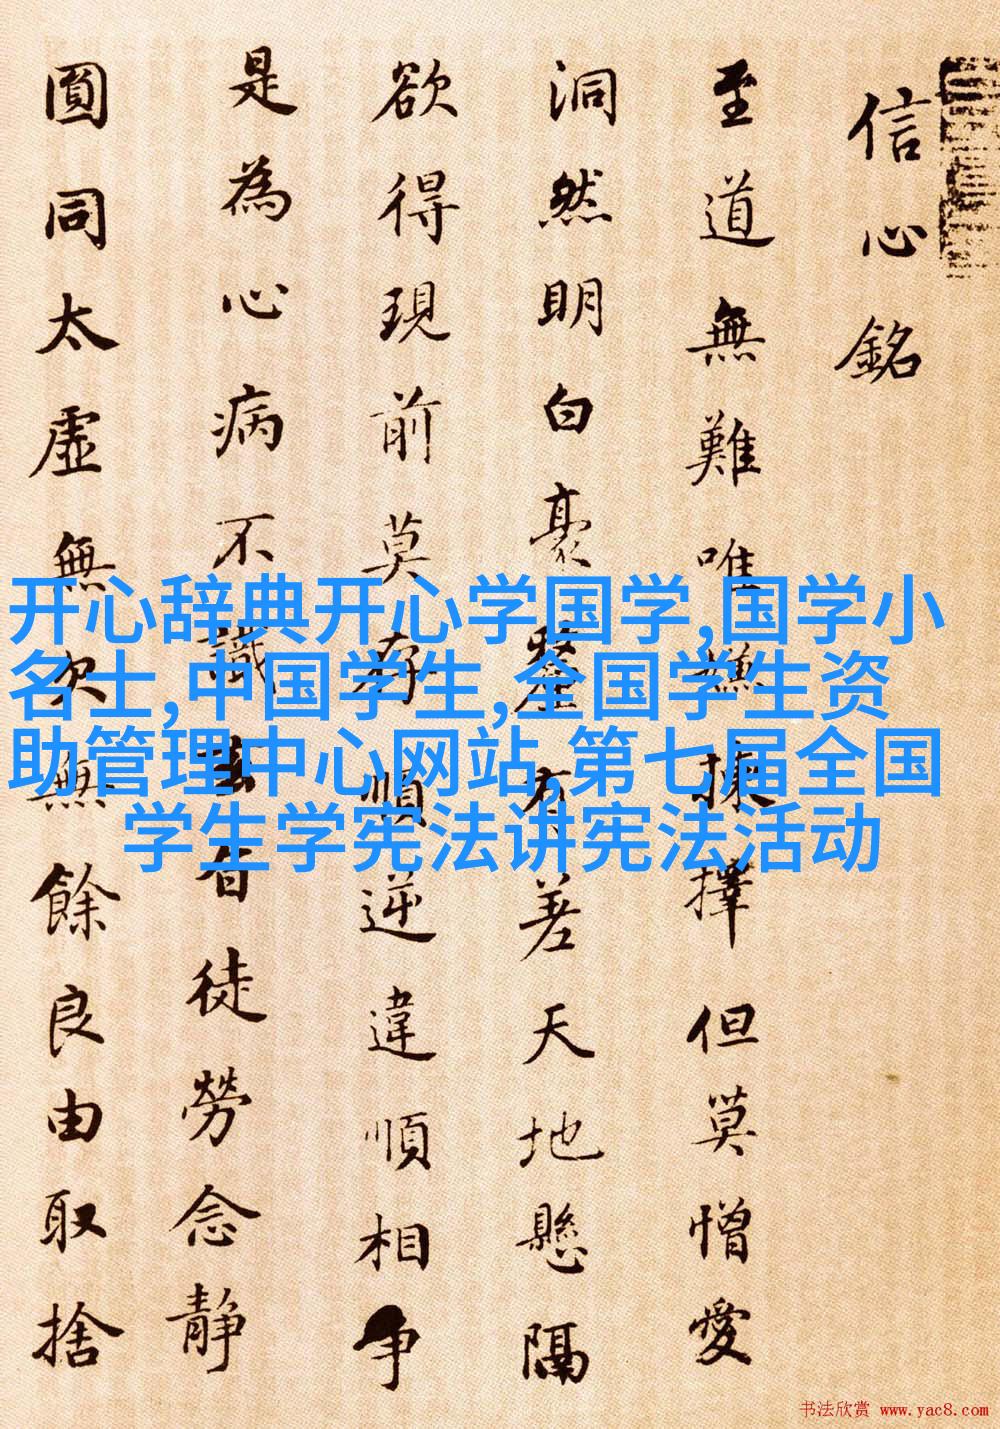 信心銘
至道無難唯嫌揀擇但莫憎愛
洞然明白豪釐有差天地懸隔
欲得現前莫存順逆違順相争
是為心病不識玄旨徒勞念静
圓同太虛無欠無餘良由取捨
开心辞典开心学国学,国学小
名士,中国学生,全国学生资
助管理中心网站,第七届全国
学生学宪法讲宪法活动
书法欣赏 www.yac8.com